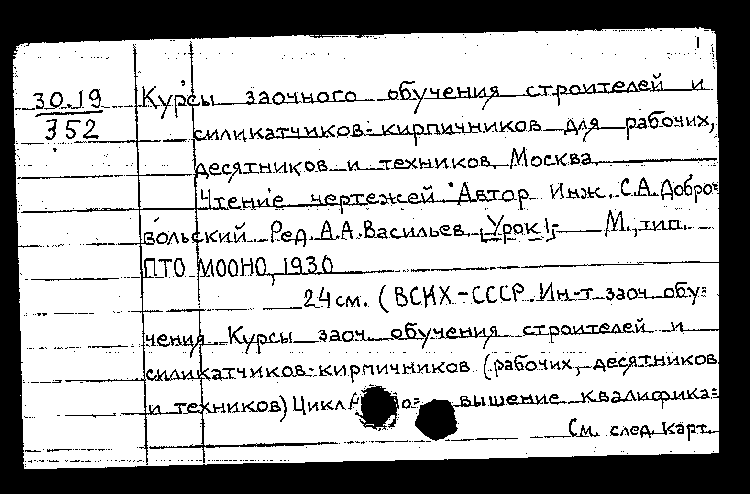 30.19
352
Курсы заочного обучения строителей и
силикатчиков-кирпичников для рабочих,
десятников и техников. Москва.
Чтение чертежей. Автор Инж. С.А. Добро=
вольский Ред. А.А. Васильев. Урок 1,- М., тип.
ПТО МООНО, 1930
24 см. (ВСНХ-СССР. Ин-т заоч. обу=
чения Курсы заоч. обучения строителей и
силикатчиков-кирпичников (рабочих, десятников
и техников) Цикл вышение квалифика=
См. след. карт.